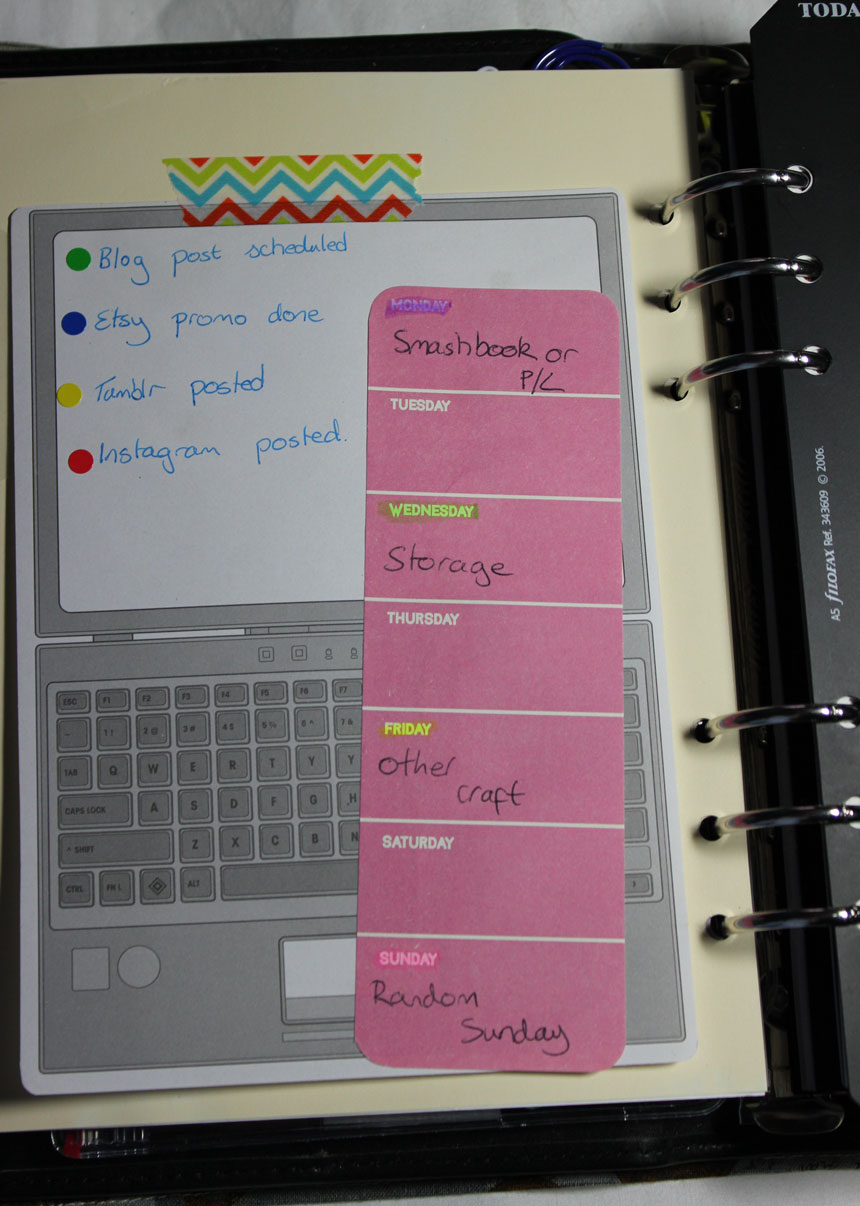 TODA
Blog post scheduled
Etsy promo done
Tumblr posted
Instagram posted.
MONDAY
Smashbook or
P/L
TUESDAY
WEDNESDAY
Storage
THURSDAY
FRIDAY
other
craft
SATURDAY
SUNDAY
Random
Sunday
A5 FILOFAX Ref. 343609 © 2006.
ESC F1 F2 F3 F4 F5 F6 F7
~ 1 ! 2 @ 3 # 4 $ 5 % 6 ^ 7 &
TAB Q W E R T Y Y
CAPS LOCK A S D F G H
^ SHIFT Z X C B N
CTRL FN L ALT